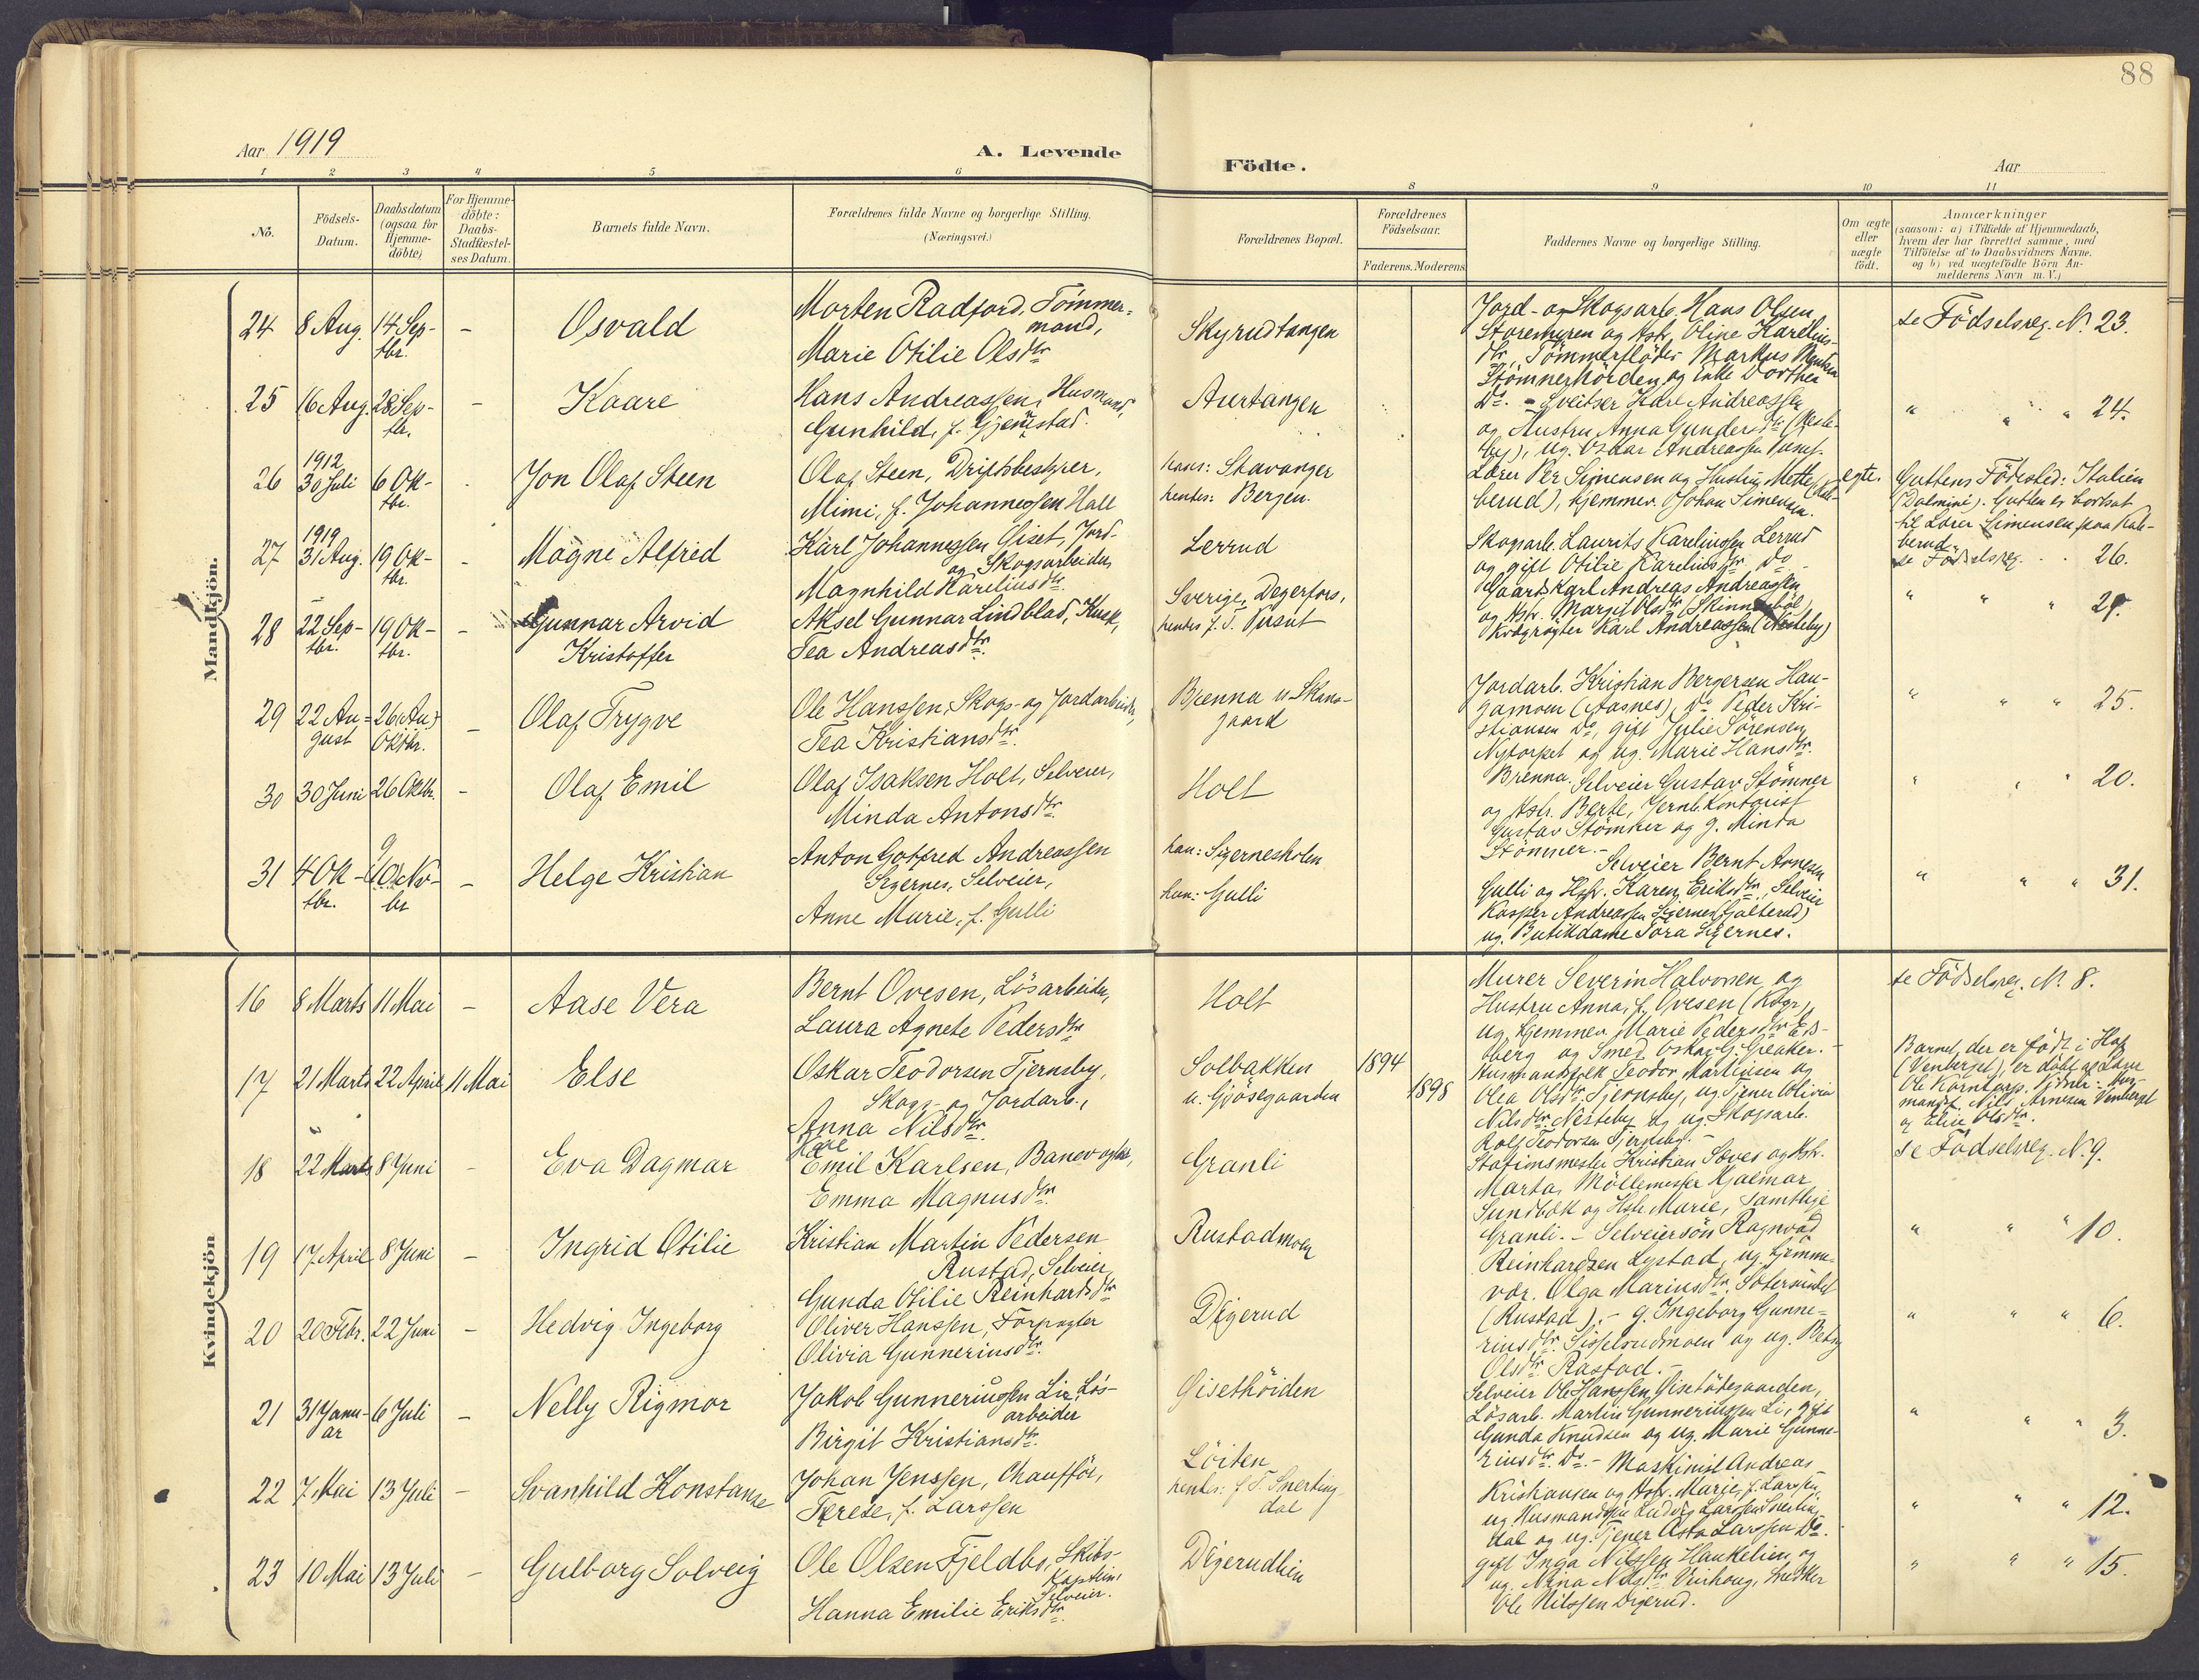 88
Aar 1919
A. Levende
Födte.
Aar
1 2 3 4 5 6 8 9 10 11
No.
Födsels-
Datum.
Daabsdatum
(ogsaa for
Hjemme-
döbte)
For Hjemme-
döbte:
Daabs-
Stadfæstel-
ses Datum.
Barnets fulde Navn.
Forældrenes fulde Navne og borgerlige Stilling.
(Næringsvei.)
Forældrenes Bopæl.
Forældrenes
Födselsaar.
Faderens. Moderens
Faddernes Navne og borgerlige Stilling.
Om ægte
eller
uægte
födt.
Anmærkninger
(saasom: a) i Tilfælde af Hjemmedaab,
hvem der har forrettet samme, med
Tilföielse af to Daabsvidners Navne.
og b) ved uægtefödte Börn An-
melderens Navn m. V.)
Mandkjön.
24 8 Aug. 14 Sep-
tbr.
-
Osvald
Morten Radford, Tömmer-
mand,
Marie Otilie Olsdtr
Skyrudtangen
Jord- og Skogsarb. Hans Olsen
og Hstr. Oline Karelius-
dtr, Tömmerflöder Markus
Stömnerhörden og Enke Dorthea
Do. -
se Födselsreg. N. 23.
25 16 Aug. 28 Sep-
tbr.
-
Kaare
Hans Andreassen, Husmand,
Gunhild, f. Gjemstad.
Aurtangen
Sveitser Karl Andreassen
og Hustru Anna Gundersdtr
ug. Oskar Andreassen Pusut.
" " " 24.
26 1912
30 Juli 6 Ok-
tbr.
Jon Olaf Steen
Olaf Steen, Driftsbestyrer,
Mimi, f. Johannessen Hall
hans: Stavanger
hendes: Bergen.
Lærer Per Simensen og Hustru Mette (Kal-
berud), hjemmev. Johan Simensen.
egte.
Guttens Födested: Italien
(Dalmine). Gutten er bortsat
til Lærer Simensen paa Kal-
berud.
27 1919
31 Aug. 19 Ok-
tbr.
-
Magne Alfred
Karl Johannessen Giset, Jord-
og Skogsarbeider,
Magnhild Kareliusdtr.
Lerrud
Skogsarb. Laurits Kareliussen Lerrud
og gift Otilie Kareliusdtr Do -
se Födselsreg. " " 26.
28 22 Sep-
tbr. 19 Ok-
tbr.
-
Gunnar Arvid
Kristoffer
Aksel Gunnar Lindblad, Kusk,
Tea Andreasdtr.
Sverige, Degerfors,
hendes f. T. Pusut
Gaardb. Karl Andreas Andreassen
og Hstr. Margit Olsdtr (Skinnesböl)
Kvægrögter Karl Andreassen (Nesteby)
" " " 29.
29 22 Au-
gust 26 (Au)
Oktbr.
-
Olaf Trygve
Ole Hanssen, Skogs- og Jordarbeider,
Tea Kristiansdtr.
Brenna u. Skans-
gaard
Jordarb. Kristian Bergersen Hau-
gamoen (Aasnes), Do Peder Kri-
stiansen Do, gift Julie Sörensen
Nytorpet og ug. Marie Hansdtr.
Brenna.
" " " 25.
30 30 Juni 26 Oktbr.
-
Olaf Emil
Olaf Isaksen Holt, Selveier,
Minda Antonsdtr.
Holt
Selveier Gustav Stömner
og Hstr. Berte, Jernb. Kontorist
Gustav Stömner og g. Minda
Stömner. -
" " " 20.
31 4 Ok-
tbr. 9 Nov-
br
-
Helge Kristian
Anton Gotfred Andreassen
Sigernes, Selveier,
Anne Marie, f. Gulli
han: Sigernesholen
hun: Gulli
Selveier Bernt Arnesen
Gulli og Hstr. Karen Eriksdtr, Selveier
Kasper Andreassen Sigernes (Galterud)
ug. Butikdame Tora Sigernes.
" " " 31.
Kvindekjön
16 8 Marts 11 Mai
-
Aase Vera
Bernt Ovesen, Lösarbeider,
Laura Agnete Pedersdtr
Holt
Murer Severin Halvorsen og
Hustru Anna, f. Ovesen (Kbgr),
ug. hjemmev. Marie Pedersdtr Eds-
berg og Smed Oskar G. Greaker. -
se Födselsreg. N. 8.
17 21 Marts 22 April 11 Mai
Else
Oskar Teodorsen Tjernsby,
Skogs- og Jordarb.,
Anna Nilsdtr.
Solbakken
u. Gjösegaarden
1894
1898
Husmand Teodor Martinsen og
Olea Olsdtr Tjernsby, ug. Tjener Olivia
Nilsdtr Nesteby og ug. Skogsarb.
Rolf Teodorsen Tjernsby. -
Barnet, der er födt i Hof
(Venberget), er döbt af Lærer
Ole Korntorp. Vidner: Hus-
mand Nils Arnesen Venberget
og Olive Olsdtr.
18 22 Marts 8 Juni
-
Eva Dagmar
Karl
Emil Karlsen, Banevogter,
Emma Magnusdtr.
Granli
Stationsmester Kristian Sæves og Hstr.
Marta, Möllemester Hjalmar
Sundbök og Hstr. Marie, samtlige
Granli. -
se Födselsreg. N. 9.
19 17 April 8 Juni
-
Ingrid Otilie
Kristian Martin Pedersen
Rustad, Selveier,
Gunda Otilie Reinhartsdtr
Rustadmoen
Selveiersön Ragnvald
Reinhardsen Lystad, ug. hjemme-
vær. Olga Mariusdtr.
(Rustad). -
" " " 10.
20 20 Febr. 22 Juni
-
Hedvig Ingeborg
Oliver Hanssen, Forpagter
Olivia Gunneriusdtr.
Digerud
g. Ingeborg Gunne-
riusdtr. Sisselrudmoen og ug. Betsy
Olsdtr Rastad. -
" " " 6.
21 31 Janu-
ar 6 Juli
-
Nelly Rigmor
Jakob Gunneriussen Lie, Lös-
arbeider
Birgit Kristiansdtr.
Gisethöiden
Selveier Ole Hanssen Gisetödegaarden,
Lösarb. Martin Gunneriussen Li, gift
Gunda Knudsen og ug. Marie Gunne-
riusdtr. Do. -
" " " 3.
22 7 Mai 13 Juli
-
Svanhild Konstanse
Johan Jenssen, Chaufför,
Terese, f. Larssen
Löiten
hendes: f. T. Snerting-
dal
Maskinist Andreas
Kristiansen og Hstr. Marie, f. Larssen,
ug. Husmandssön Ludvig Larssen Snerting-
dal og ug. Tjener Asta Larssen Do.
" " " 12.
23 10 Mai 13 Juli
-
Gulborg Solveig
Ole Olsen Fjeldbo, Skibs-
kaptein,
Selveier.
Hanna Emilie Eriksdtr
Digerudlien
gift Inga Nilssen Haukelien og
ug. Nina Nilsdtr Vinhaug, Snedker
Ole Nilssen Digerud.
" " " 15.